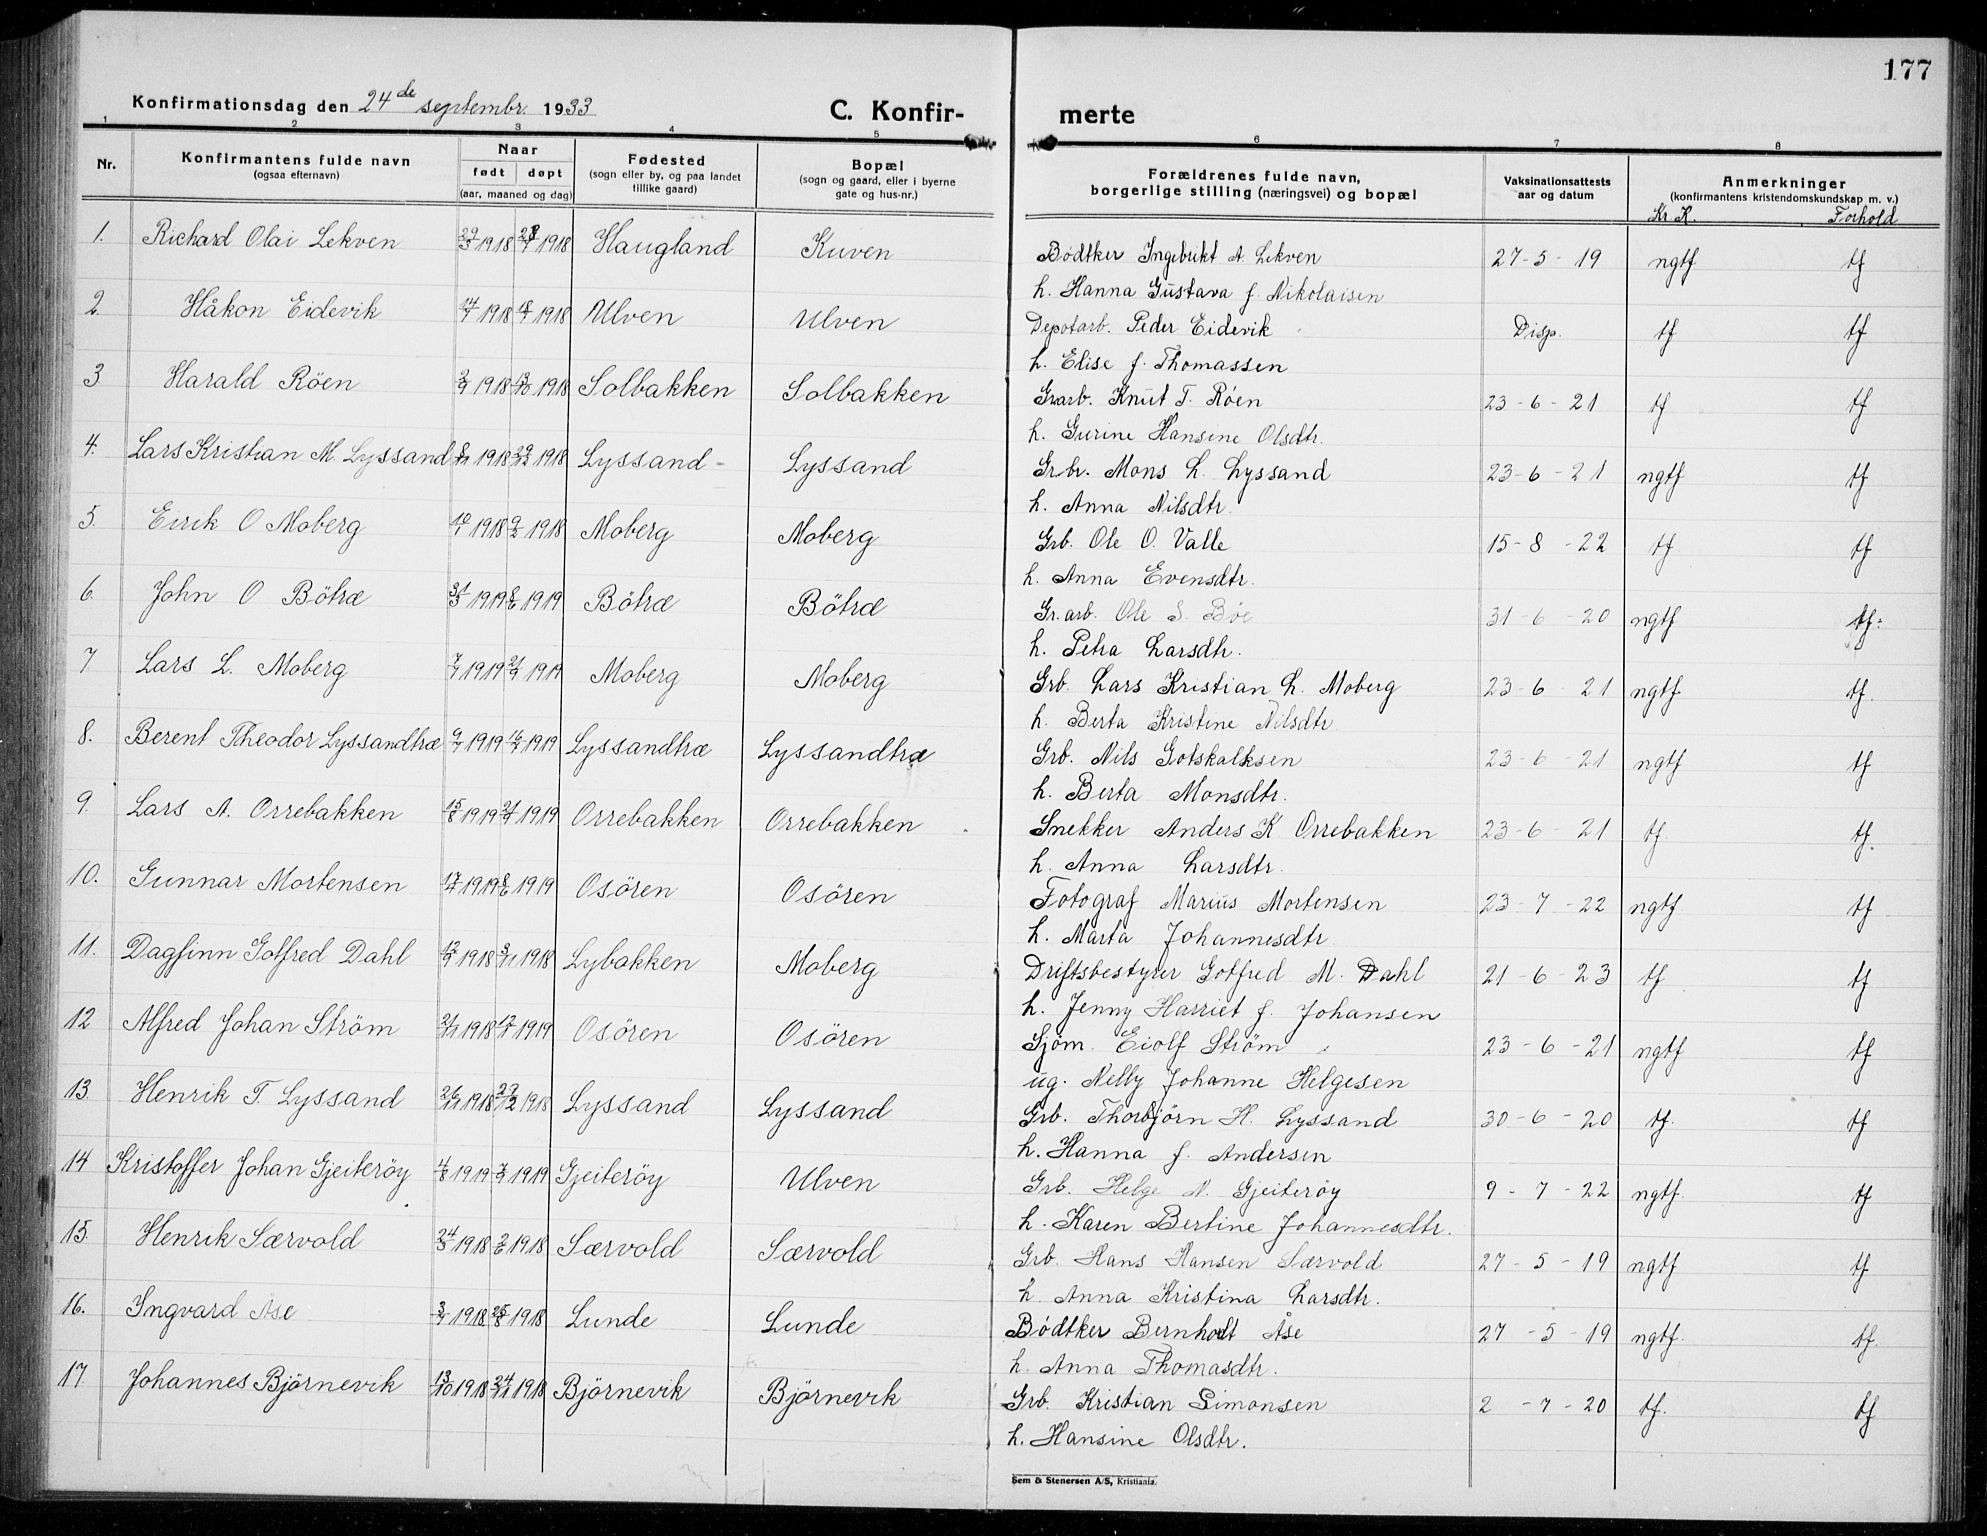 177
Konfirmationsdag den 24de septembr. 1933
C. Konfir- merte
1 2 3 4 5 6 7 8
Nr.
Konfirmantens fulde navn
(ogsaa efternavn)
Naar
født døpt
(aar, maaned og dag)
Fødested
(sogn eller by, og paa landet
tillike gaard)
Bopæl
(sogn og gaard, eller i byerne
gate og hus-nr.)
Forældrenes fulde navn,
borgerlige stilling (næringsvei) og bopæl
Vaksinationsattests
aar og datum
Anmerkninger
(konfirmantens kristendomskundskap m. v.)
Kr K. Forhold
1. Richard Olai Lekven 29/3 1918 1918 Haugland Kuven Bødtker Ingebrikt A. Lekven 27-5-19 ngtf tf
h. Hanna Gustava f. Nikolaisen
2. Håkon Eidevik 1918 1918 Ulven Ulven Depotarb. Peder Eidevik Disp. tf tf
h. Elise f. Thomassen
3 Harald Röen 1918 1918 Solbakken Solbakken Grarb. Knut T. Røen 23-6-21 tf tf
h. Gurine Hansine Olsdtr.
4. Lars Kristian M. Lyssand 1918 1918 Lyssand- Lyssand Gr.br. Mons L. Lyssand 23-6-21 ngtf tf
h. Anna Nilsdtr.
5. Eirik O Moberg 1918 1918 Moberg Moberg Grb. Ole O. Valle 15-8-22 tf tf
h. Anna Evensdtr.
6. John O Bötræ 31/3 1919 8/6 1919 Bötræ Bötræ Gr.arb. Ole S. Bøe 31-6-20 ngtf tf.
h. Petra Larsdtr.
7 Lars L. Moberg 1919 1919 Moberg Moberg Grb. Lars Kristian L. Moberg 23-6-21 ngtf tf.
h. Berta Kristine Nilsdtr
8. Berent Theodor Lyssandtræ 1919 1919 Lyssandtræ Lyssandtræ Grb. Nils Gotskalksen 23-6-21 ngtf tf
h. Berta Monsdtr.
9. Lars A. Orrebakken 15/8 1919 1919 Orrebakken Orrebakken Snekker Anders K Orrebakken 23-6-21 tf. tf.
h. Anna Larsdtr.
10. Gunnar Mortensen 1919 8/6 1919 Osören Osören Fotograf Marius Mortensen 23-7-22 ngtf. tf
h. Marta Johannesdtr.
11. Dagfinn Gotfred Dahl 12/9 1918 3/11 1918 Lybakken Moberg Driftsbestyrer Gotfred M. Dahl 21-6-23 tf. tf
h. Jenny Harriet f. Johansen
12 Alfred Johan Ström 21/11 1918 1919 Osören Osören Sjøm. Eiolf Strøm 23-6-21 ngtf tf
ug. Nelly Johanne Helgesen
13. Henrik T. Lyssand 1918 29/12 1918 Lyssand Lyssand Grb. Thorbjörn H. Lyssand 30-6-20 tf. tf
h. Hanna f. Andersen
14 Kristoffer Johan Gjeiterøy 4/8 1919 7/9 1919 Gjeiterøy Ulven Grb. Helge N. Gjeiterøy 9-7-22 ngtf. tf
h. Karen Bertine Johannesdtr.
15. Henrik Særvold 24/3 1918 1918 Særvold Særvold Grb. Hans Hansen Særvold 27-5-19 ngtf tf
h. Anna Kristina Larsdtr.
16. Ingvard Åse 1918 25/8 1918 Lunde Lunde Bødtker Bernhodt Åse 27-5-19 ngtf. tf.
h. Anna Thomasdtr.
17. Johannes Björnevik 13/10 1918 24/11 1918 Björnevik Björnevik Grb. Kristian Simonsen 2-7-20 tf. tf
h. Hansine Olsdtr.
Sem & Stenersen A/S, Kristiania.